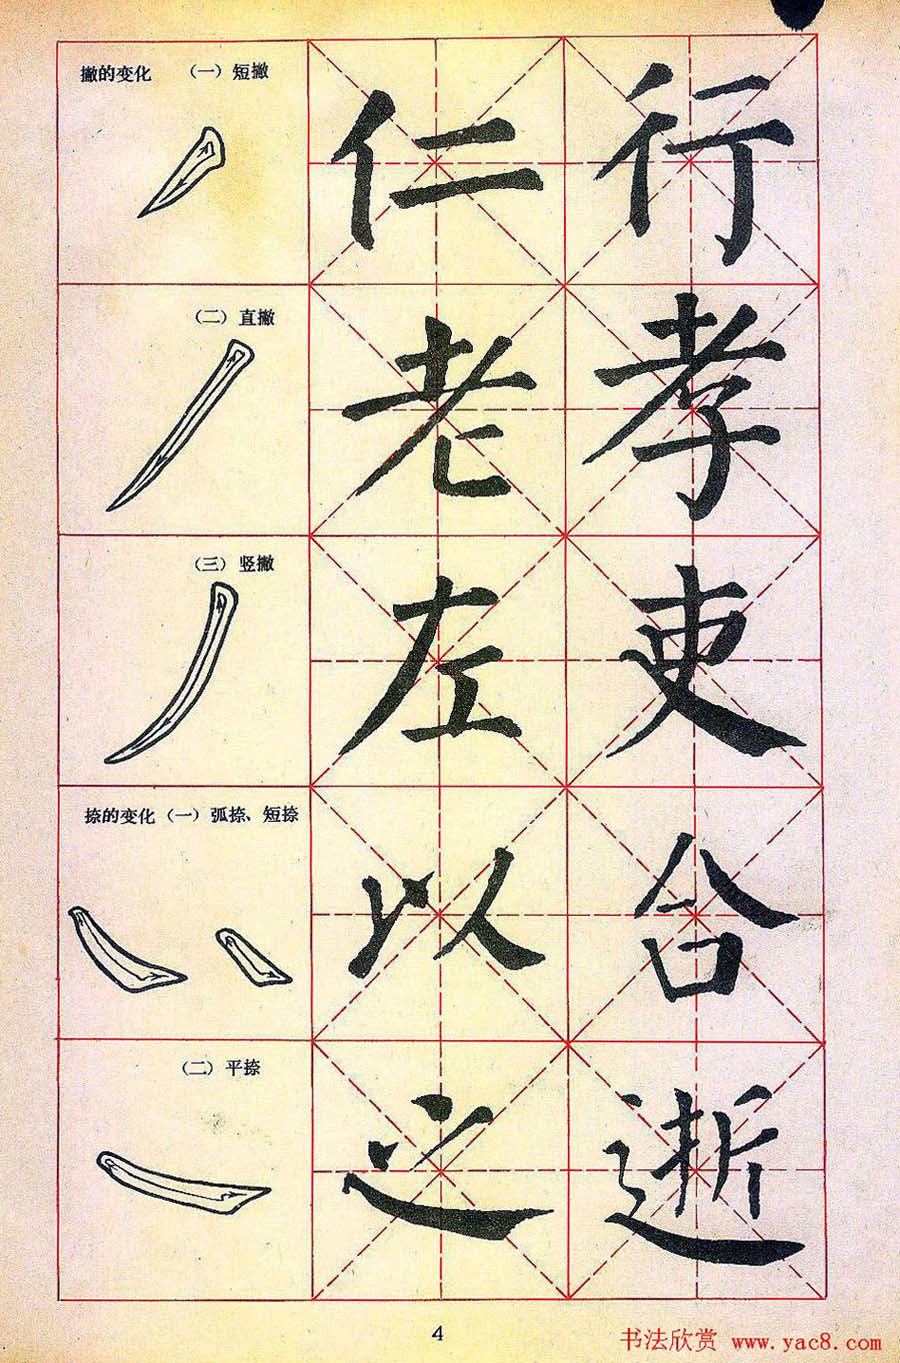 撇的变化 （一）短撇
仁 行
（二）直撇
老 孝
（三）竖撇
左 吏
捺的变化（一）弧捺、短捺
以 合
（二）平捺
之 逝
4
书法欣赏 www.yac8.com